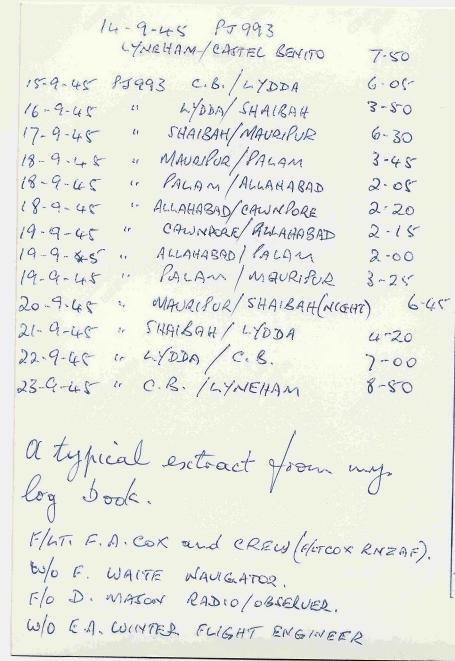 14-9-45 PJ993
LYNEHAM/CASTEL BENITO 7-50
15-9-45 PJ993 C.B./LYDDA 6-05
16-9-45 " LYDDA/SHAIBAH 3-50
17-9-45 " SHAIBAH/MAURIPUR 6-30
18-9-45 " MAURIPUR/PALAM 3-45
18-9-45 " PALAM/ALLAHABAD 2-05
18-9-45 " ALLAHABAD/CAWNPORE 2-20
19-9-45 " CAWNPORE/ALLAHABAD 2-15
19-9-45 " ALLAHABAD/PALAM 2-00
19-9-45 " PALAM/MAURIPUR 3-25
20-9-45 " MAURIPUR/SHAIBAH(NIGHT) 6-45
21-9-45 " SHAIBAH/LYDDA 4-20
22-9-45 " LYDDA/C.B. 7-00
23-9-45 " C.B./LYNEHAM 8-50
A typical extract from my
log book.
F/LT. F.A. COX and CREW (F/LT COX RNZAF).
W/O F. WAITE NAVIGATOR.
F/O D. MASON RADIO/OBSERVER.
W/O E.A. WINTER FLIGHT ENGINEER